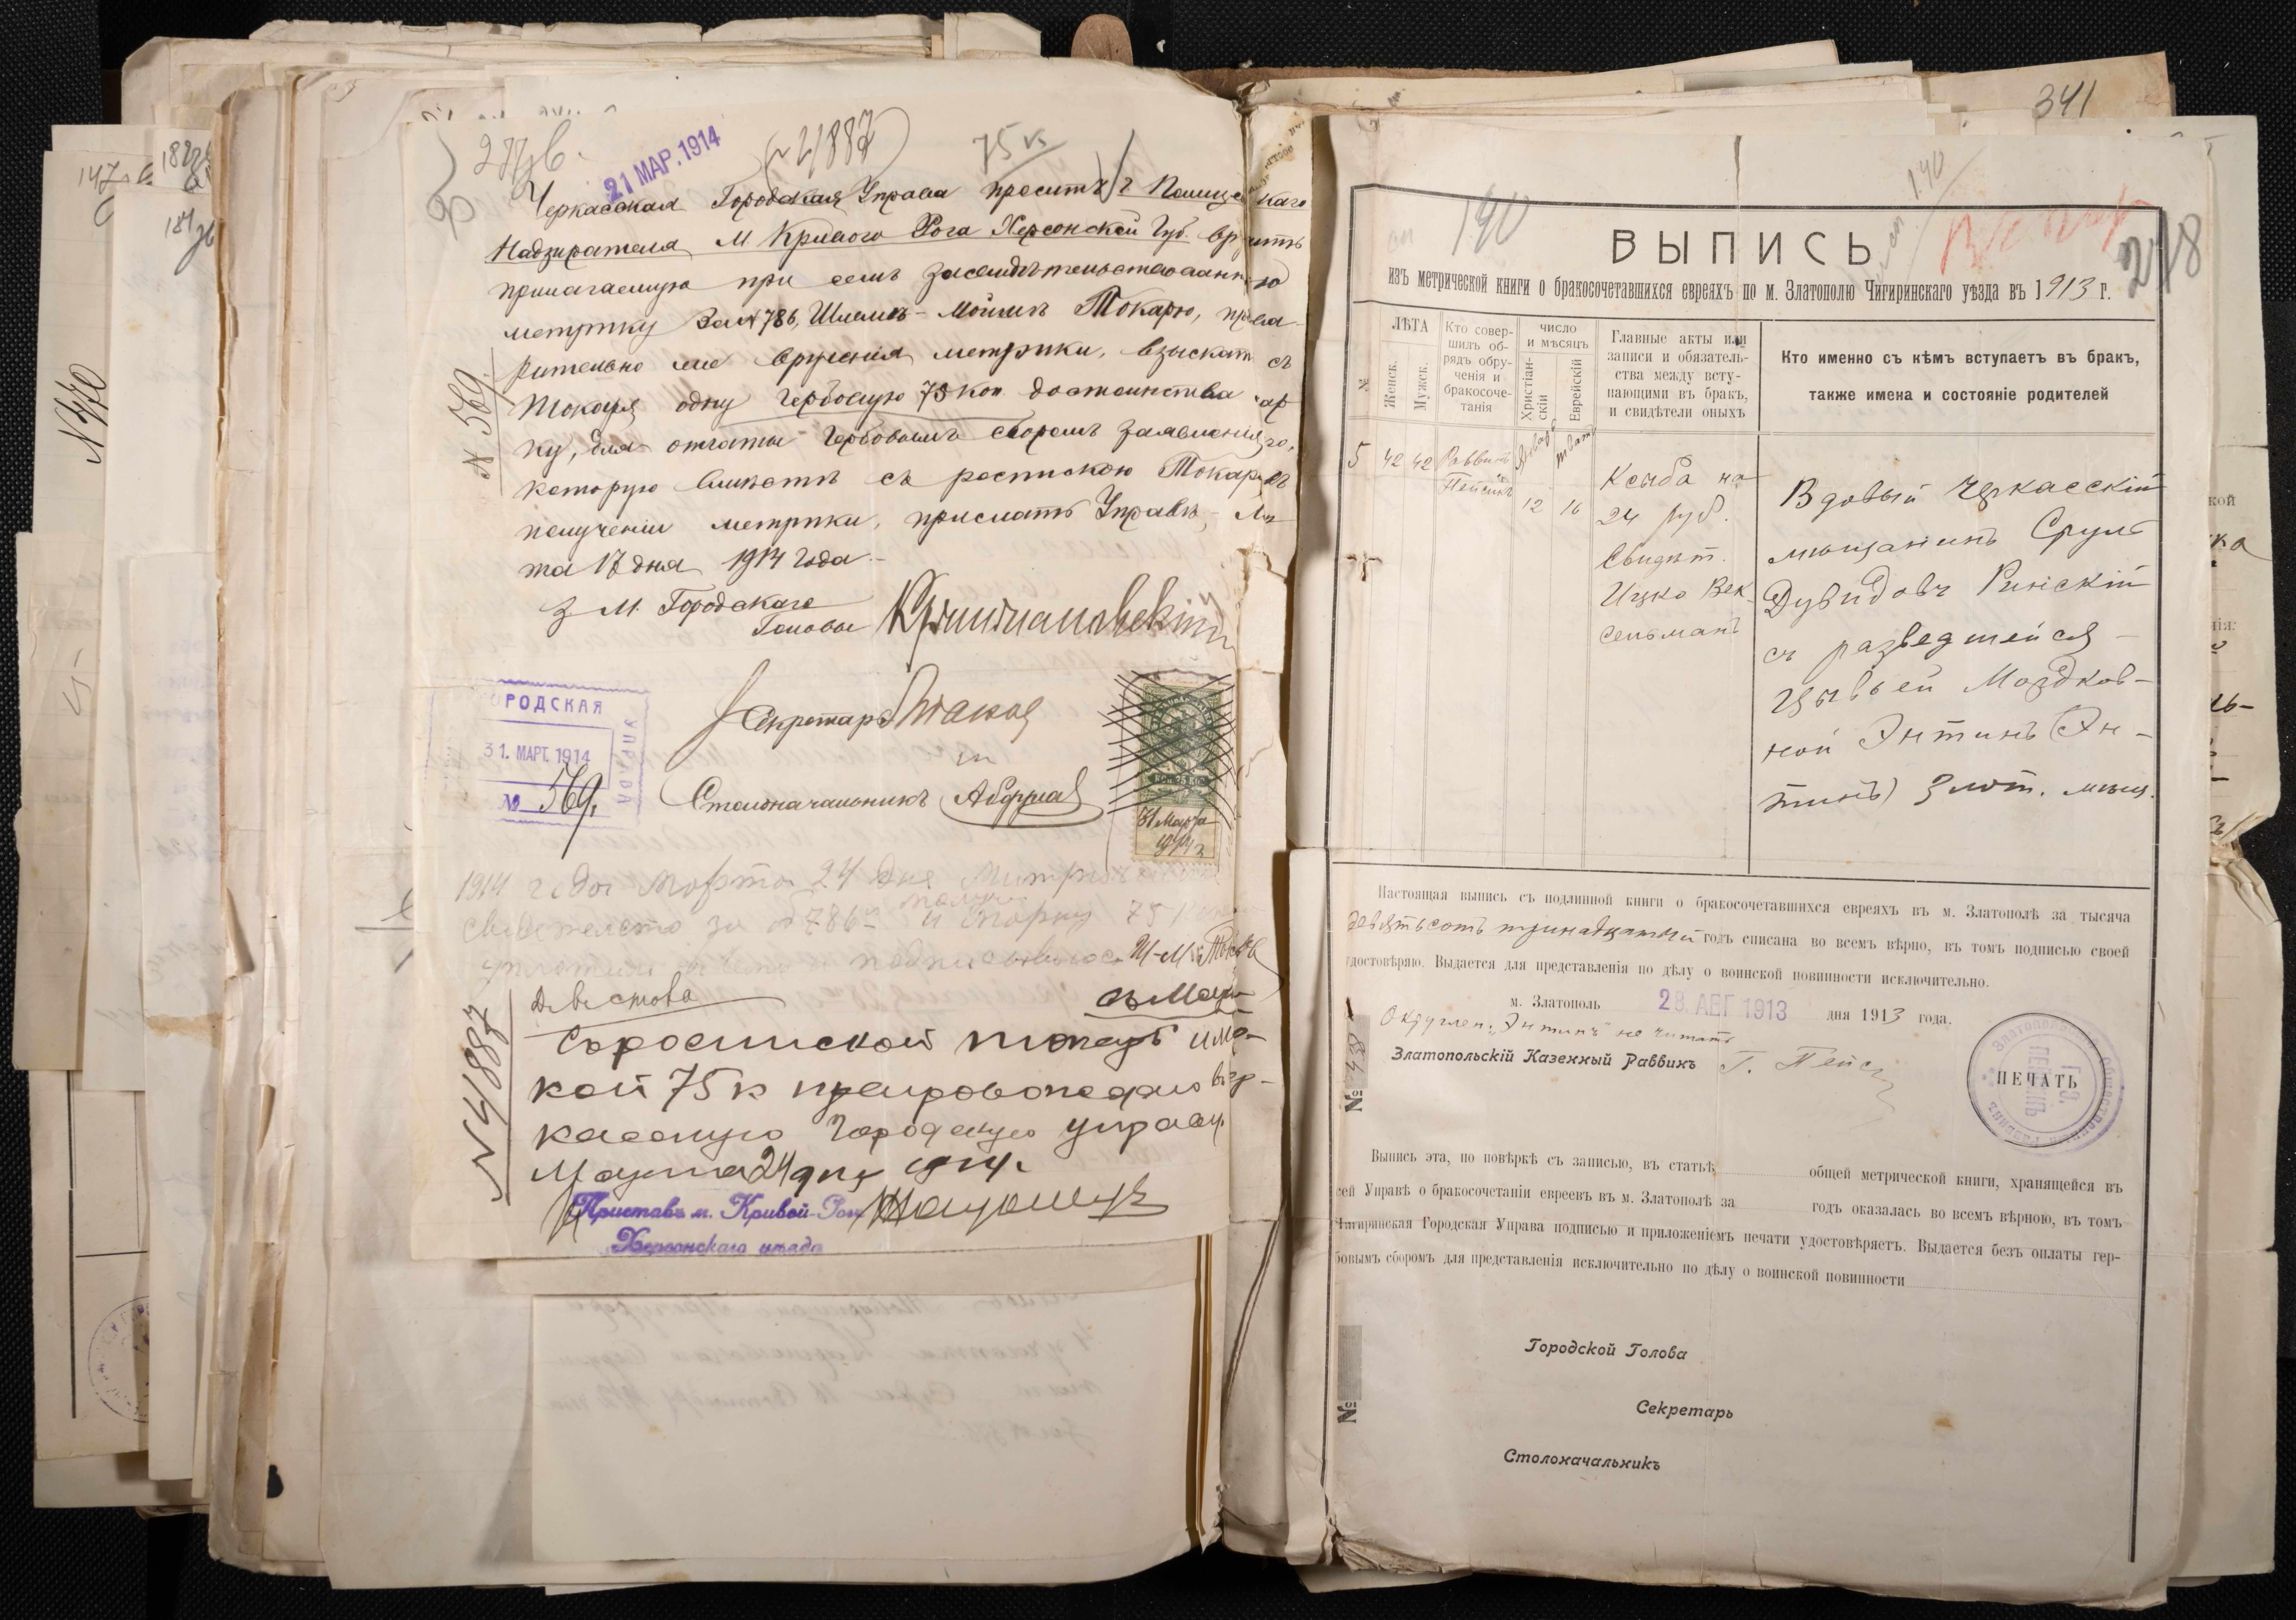 147
182
184
N 470
277 об.
21 МАР. 1914
(N 4/887)
75 к
Черкасская Городская Управа проситъ г Полицейскаго
Надзирателя М Кривого Рога Херсонской Губ. вручить
прилагаемую при семъ засвидѣтельствованную
метрику за N 786, Шлемѣ-Мойшѣ Токарю, предва-
рительно же врученія метрики, взыскать съ
Токаря одну гербовую 75 коп достоинства мар
ку, для оплаты гербовымъ сборомъ заявленія его,
которую вмѣстѣ съ роспискою Токаря въ
полученіи метрики, прислать Управѣ, Мар
та 17 дня 1914 года.-
N 569
З М. Городского
Головы
Секретарь
Столоначальникъ
РОДСКАЯ
УПРАВА
31. МАРТ. 1914
№ 569.
КОП. 75 КОП.
31 Марта
1914 г
1914 года Марта 24 дня Метрическое
свидетелсто за N 786 получил и марку 75 к
уплотил в чем и подписываюсь Ш-М Токарь
N 4/887
Двѣстова
съ мар-
кой 75 к препровождаю въ Чер-
касскую Городскую управу.
Марта 24 дня 1914 г.
Приставъ м. Кривой-Рогъ
Херсонскаго уѣзда
341
190
ст 190
278
ВЫПИСЬ
изъ метрической книги о бракосочетавшихся евреяхъ по м. Златополю Чигиринскаго уѣзда въ 1913 г.
№
ЛѢТА
Женск.
Мужск.
Кто совер-
шилъ об-
рядъ обру-
ченія и
бракосоче-
танія
число
и мѣсяцъ
Христіан-
скій
Еврейскій
Главные акты или
записи и обязатель-
ства между всту-
пающими въ бракъ,
и свидѣтели оныхъ
Кто именно съ кѣмъ вступаетъ въ бракъ,
также имена и состояніе родителей
5
42
42
Раввинъ
Пейсикъ
Января
12
Шватъ
16
Ксыба на
24 руб.
Свидѣт.
Ицко Век-
сельманъ
Вдовый Черкасскій
мѣщанинъ Сруль
Дувидовъ Ринскій
съ разведшейся
Цывьей Мордков-
ной Энтинъ (Эн-
тинъ) Злот. мѣщ.
Настоящая выпись съ подлинной книги о бракосочетавшихся евреяхъ въ м. Златополѣ за тысяча
девятьсотъ тринадцатый годъ списана во всемъ вѣрно, въ томъ подписью своей
удостовѣряю. Выдается для представленія по дѣлу о воинской повинности исключительно.
м. Златополь 28. АВГ 1913 дня 1913 года.
Округлен. „Энтинъ" не читать
Златопольскій Казенный Раввинъ Г. Пейсикъ
ПЕЧАТЬ
№ 438
Выпись эта, по повѣркѣ съ записью, въ статьѣ общей метрической книги, хранящейся въ
сей Управѣ о бракосочетаніи евреевъ въ м. Златополѣ за годъ оказалась во всемъ вѣрною, въ томъ
Чигиринская Городская Управа подписью и приложеніемъ печати удостовѣряетъ. Выдается безъ оплаты гер-
бовымъ сборомъ для представленія исключительно по дѣлу о воинской повинности
№
Городской Голова
Секретарь
Столоначальникъ